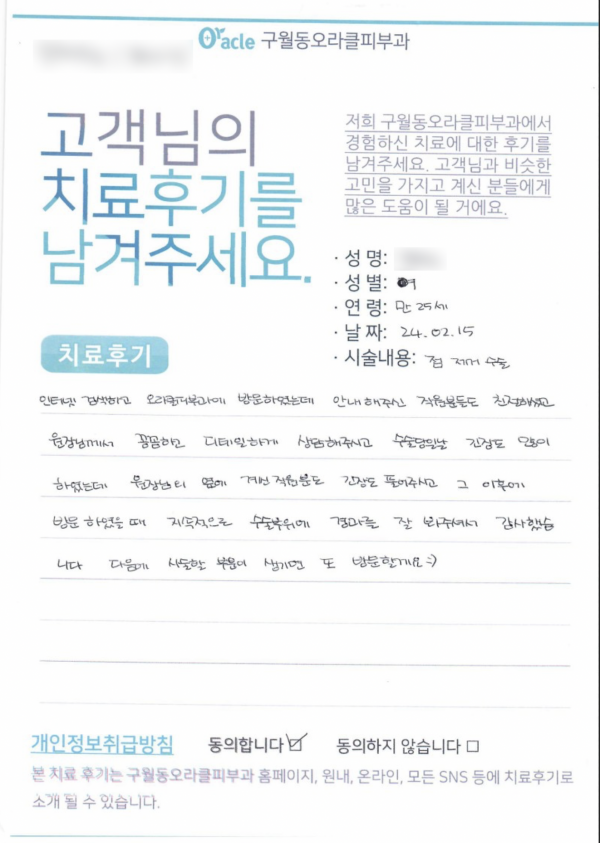 Oracle 구월동오라클피부과
고객님의
치료후기를
남겨주세요.
저희 구월동오라클피부과에서
경험하신 치료에 대한 후기를
남겨주세요. 고객님과 비슷한
고민을 가지고 계신 분들에게
많은 도움이 될 거에요.
· 성 명:
· 성 별: 여
· 연 령: 만 25세
· 날 짜: 24.02.15
· 시술내용: 점 제거 수술
치료후기
인터넷 검색하고 오라클피부과에 방문하였는데 안내해주신 직원분들도 친절하셨고
원장님께서 꼼꼼하고 디테일하게 상담해주시고 수술당일날 긴장도 많이
하였는데 원장님이 옆에 계신 직원분도 긴장도 풀어주시고 그 이후에
방문 하였을 때 지속적으로 수술부위에 경과를 잘 봐주셔서 감사했습
니다 다음에 시술할 부분이 생기면 또 방문할게요 :)
개인정보취급방침 동의합니다 ☑ 동의하지 않습니다 □
본 치료 후기는 구월동오라클피부과 홈페이지, 원내, 온라인, 모든 SNS 등에 치료후기로
소개 될 수 있습니다.